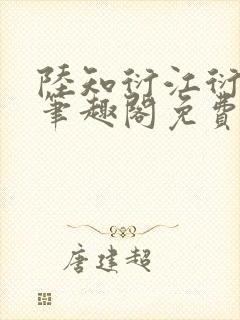 陸知衍江衍
筆趣閣免費
唐建超